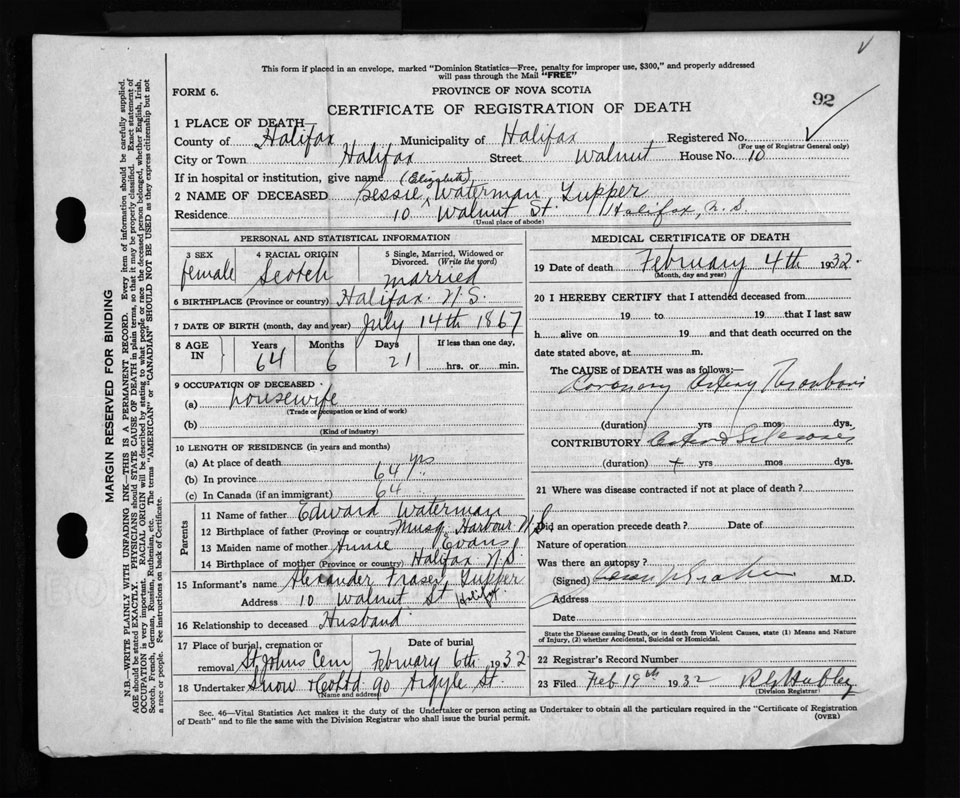 This form if placed in an envelope, marked "Dominion Statistics—Free, penalty for improper use, $300," and properly addressed
will pass through the Mail "FREE"
FORM 6. PROVINCE OF NOVA SCOTIA
CERTIFICATE OF REGISTRATION OF DEATH
92
1 PLACE OF DEATH
County of Halifax Municipality of Halifax Registered No.
(For use of Registrar General only)
City or Town Halifax Street Walnut House No. 10
If in hospital or institution, give name
(Elizabeth)
2 NAME OF DECEASED Bessie Waterman Tupper
Residence 10 Walnut St. Halifax, N.S.
(Usual place of abode)
PERSONAL AND STATISTICAL INFORMATION
3 SEX female
4 RACIAL ORIGIN Scotch
5 Single, Married, Widowed or
Divorced. (Write the word)
married
6 BIRTHPLACE (Province or country) Halifax. N.S.
7 DATE OF BIRTH (month, day and year) July 14th 1867
8 AGE IN
Years Months Days If less than one day,
64 6 21 hrs. or min.
9 OCCUPATION OF DECEASED
(a) housewife
(Trade or occupation or kind of work)
(b)
(Kind of industry)
10 LENGTH OF RESIDENCE (in years and months)
(a) At place of death 64 yrs
(b) In province 64 "
(c) In Canada (if an immigrant)
Parents
11 Name of father Edward Waterman
12 Birthplace of father (Province or country) Musq. Harbour N.S.
13 Maiden name of mother Annie Evans
14 Birthplace of mother (Province or country) Halifax N.S
15 Informant's name Alexander Fraser Tupper
Address 10 Walnut St Halifax.
16 Relationship to deceased Husband
17 Place of burial, cremation or Date of burial
removal St. Johns Cem February 6th 1932
18 Undertaker Snow & Co Ltd 90 Argyle St.
(Name and address)
MEDICAL CERTIFICATE OF DEATH
19 Date of death February 4th 1932.
(Month, day and year)
20 I HEREBY CERTIFY that I attended deceased from
19 to 19 that I last saw
h alive on 19 and that death occurred on the
date stated above, at m.
The CAUSE of DEATH was as follows:—
Coronary Artery Thrombosis
(duration) yrs mos dys.
CONTRIBUTORY
(duration) + yrs mos dys.
21 Where was disease contracted if not at place of death?
Did an operation precede death? Date of
Nature of operation
Was there an autopsy?
(Signed) M.D.
Address
Date
State the Disease causing Death, or in death from Violent Causes, state (1) Means and Nature
of Injury, (2) whether Accidental, Suicidal or Homicidal.
22 Registrar's Record Number
23 Filed Feb 19th 1932 Hubley
(Division Registrar)
Sec. 46—Vital Statistics Act makes it the duty of the Undertaker or person acting as Undertaker to obtain all the particulars required in the "Certificate of Registration
of Death" and to file the same with the Division Registrar who shall issue the burial permit. (OVER)
MARGIN RESERVED FOR BINDING
N.B.—WRITE PLAINLY WITH UNFADING INK—THIS IS A PERMANENT RECORD. Every item of information should be carefully supplied.
AGE should be stated EXACTLY. PHYSICIANS should STATE CAUSE OF DEATH in plain terms, so that it may be properly classified. Exact statement of
OCCUPATION is very important. RACIAL ORIGIN will be described by stating to what people or race the deceased person belonged, whether English, Irish,
Scotch, French, German, Russian, Ruthenian, etc. The terms "AMERICAN" or "CANADIAN" SHOULD NOT BE USED as they express citizenship but not
a race or people. See instructions on back of Certificate.